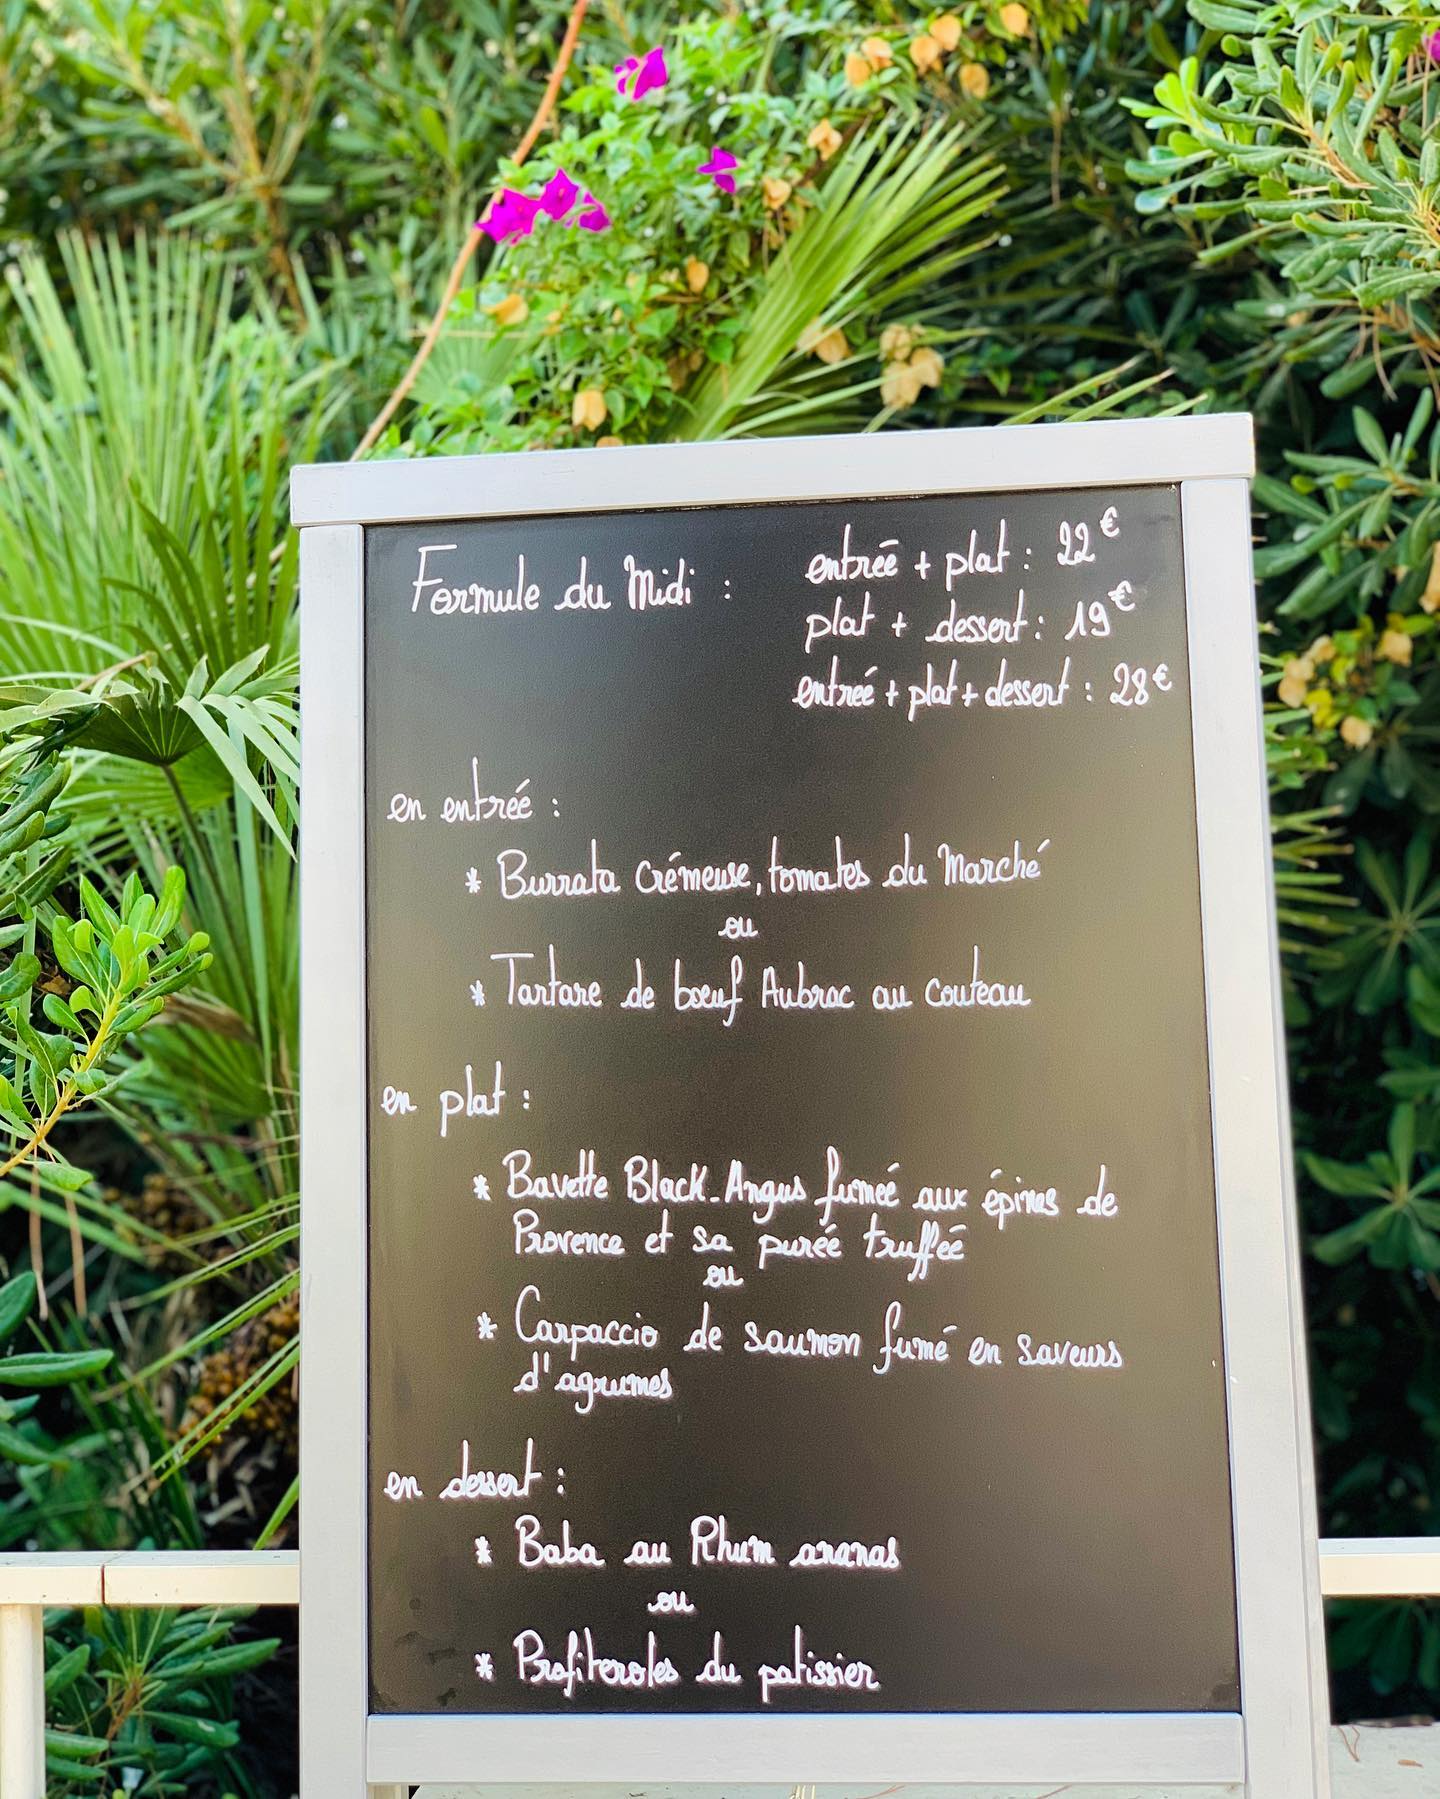 Formule du Midi : entrée + plat : 22€
plat + dessert : 19€
entrée + plat + dessert : 28€
en entrée :
* Burrata Crémeuse, tomates du Marché
ou
* Tartare de bœuf Aubrac au couteau
en plat :
* Bavette Black-Angus fumée aux épines de
Provence et sa purée truffée
ou
* Carpaccio de saumon fumé en saveurs
d'agrumes
en dessert :
* Baba au Rhum ananas
ou
* Profiteroles du patissier